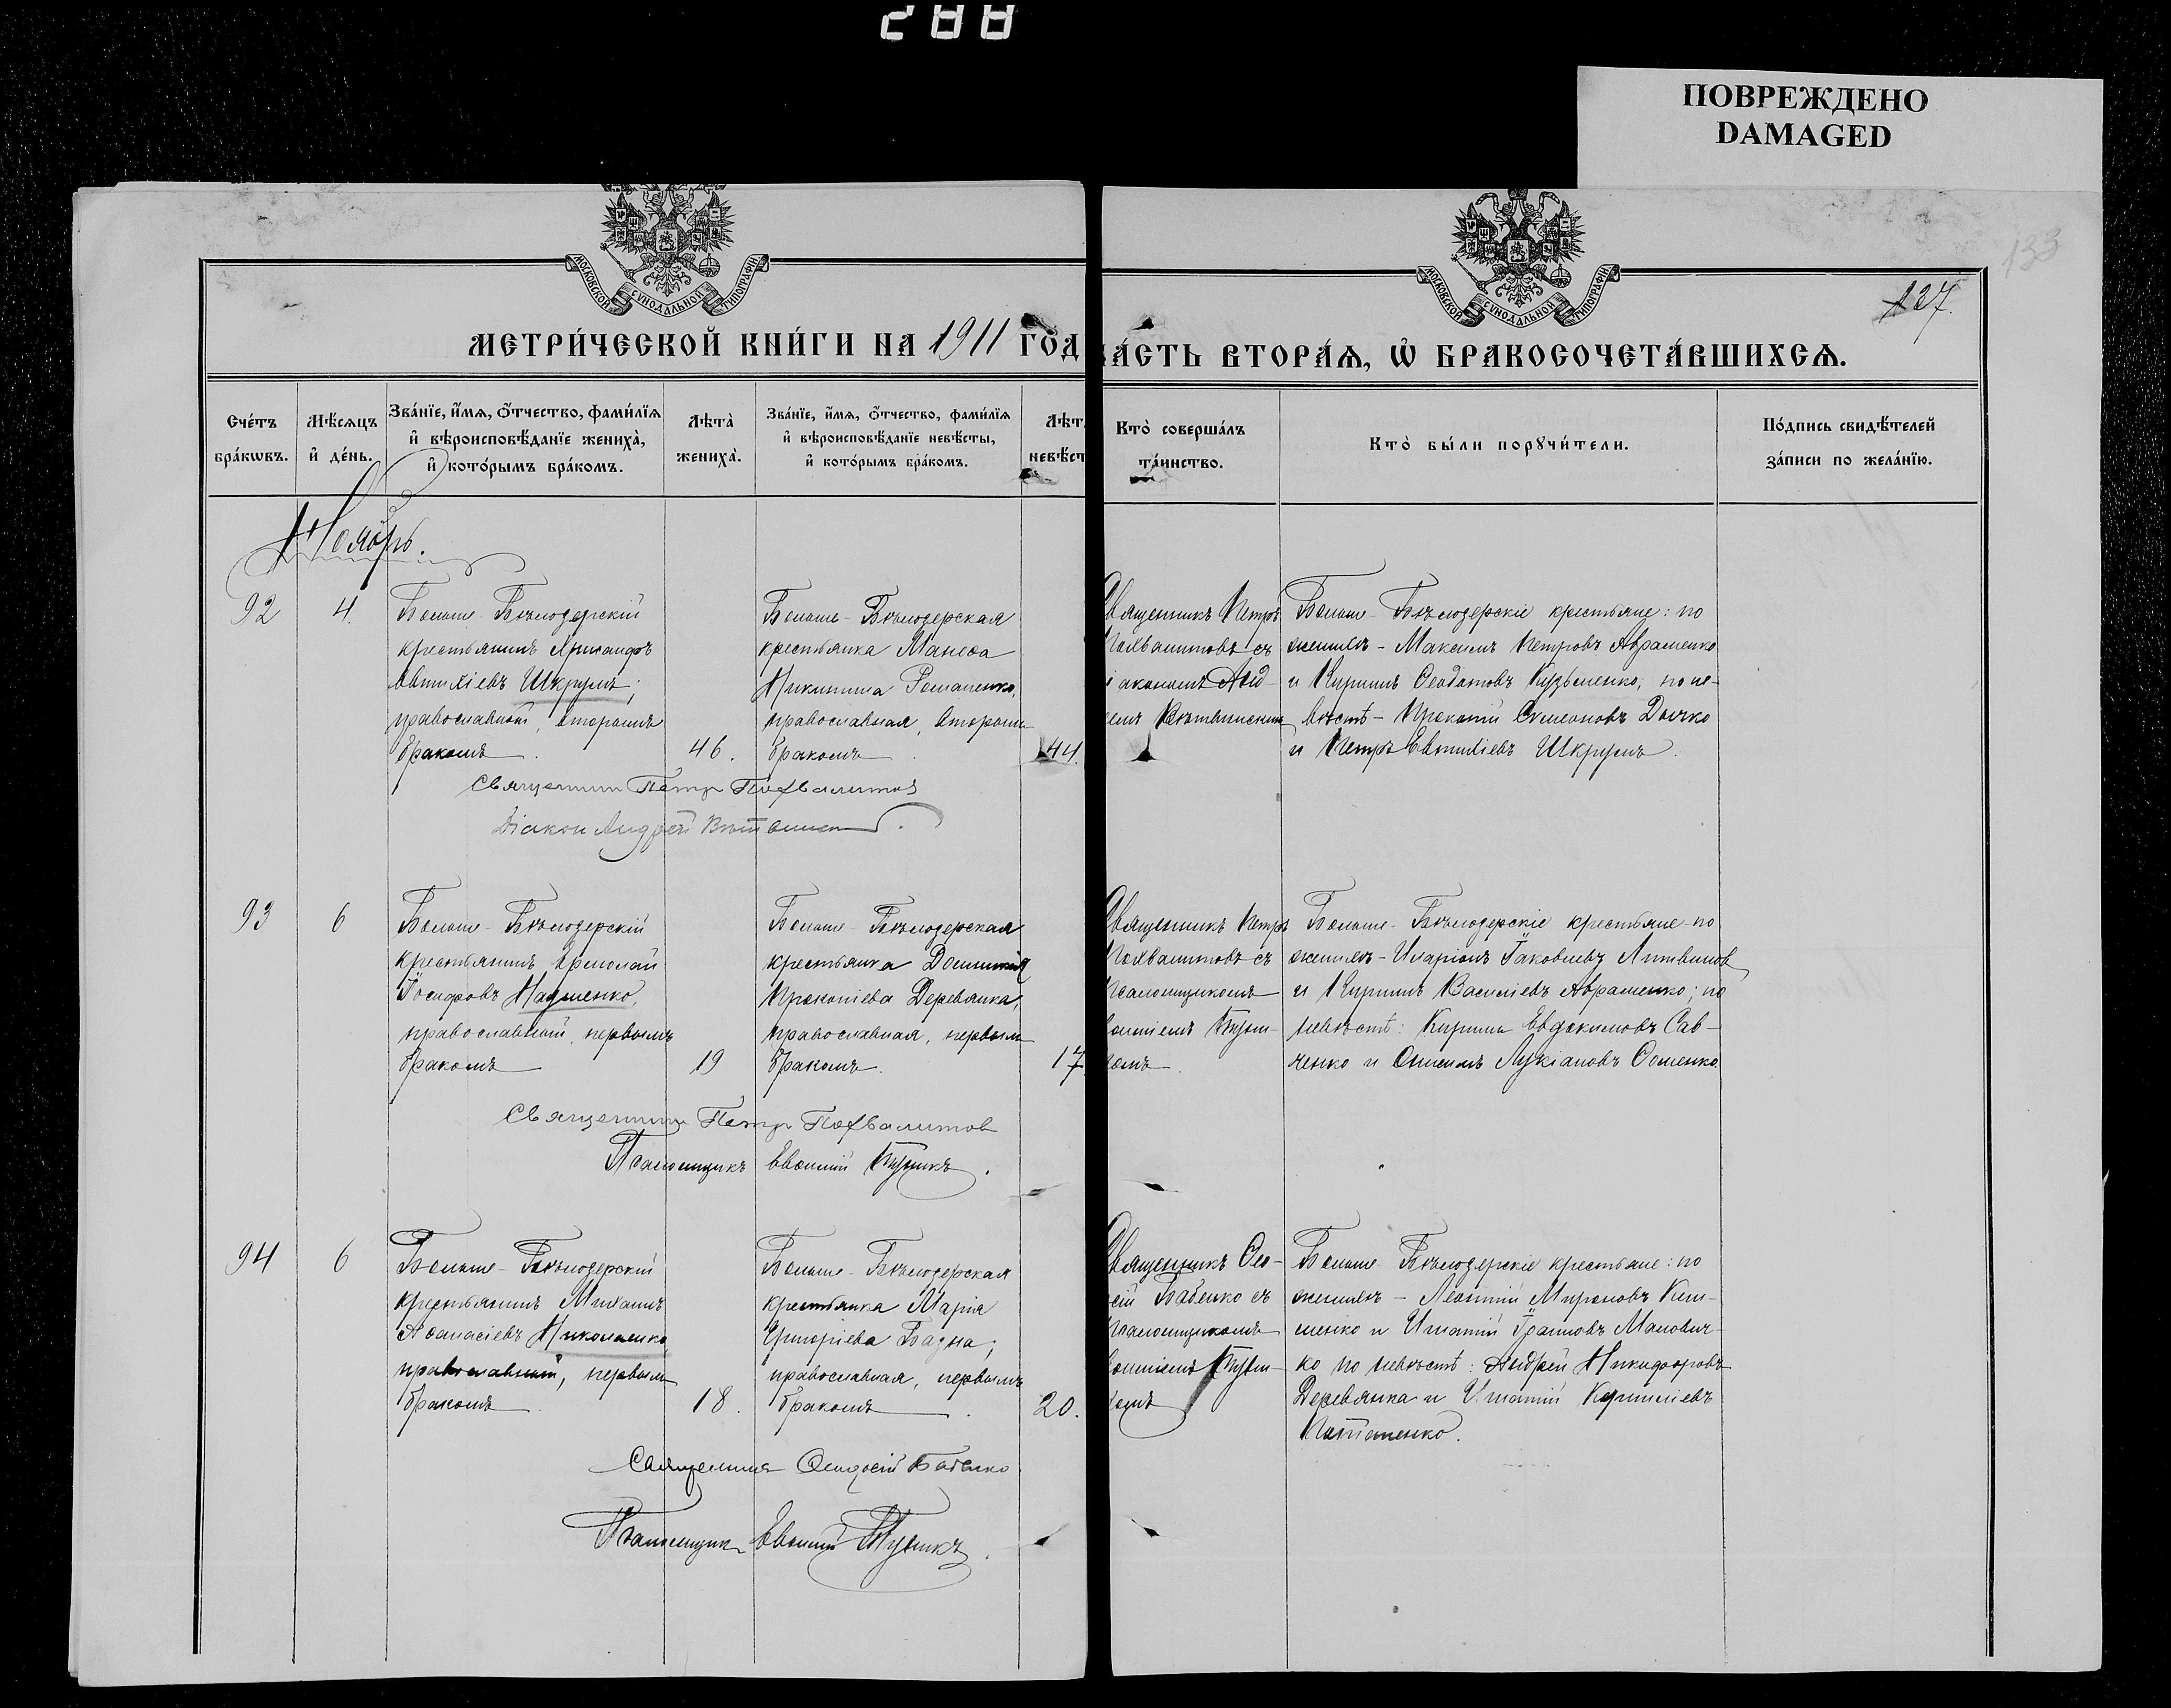 288
ПОВРЕЖДЕНО
DAMAGED
133
127.
МОСКОВСКОЙ СѴНОДАЛЬНОЙ ТИПОГРАФІИ
МОСКОВСКОЙ СѴНОДАЛЬНОЙ ТИПОГРАФІИ
МЕТРИ́ЧЕСКОЙ КНИ́ГИ НА 1911 ГО́Д
ЧА́СТЬ ВТОРА́Ѧ, Ѡ҆ БРАКОСОЧЕТА́ВШИХСѦ.
Сче́тъ бра́кѡвъ.
Мѣ́сѧцъ и҆ де́нь.
Зва́нїе, и҆́мѧ, ѻ҆́тчество, фами́лїѧ
и҆ вѣроисповѣ́данїе жениха̀,
и҆ кото́рымъ бра́комъ.
Лѣта̀ жениха̀.
Зва́нїе, и҆́мѧ, ѻ҆́тчество, фами́лїѧ
и҆ вѣроисповѣ́данїе невѣ́сты,
и҆ кото́рымъ бра́комъ.
Лѣт
невѣ́ст
Кто̀ соверша́лъ
та́инство.
Кто̀ бы́ли порꙋчи́тели.
По́дпись свидѣ́телей
за́писи по жела́нїю.
Ноябрь.
92
4.
Больше-Бѣлозерскій
крестьянинъ Хрисанфъ
Евтихіевъ Шкрумъ;
православный, вторымъ
бракомъ.
46.
Больше-Бѣлозерская
крестьянка
Никитина Романенко,
православная, вторымъ
бракомъ.
44.
Священникъ Петръ
Похвалитовъ съ
іакономъ Анд-
емъ
Больше-Бѣлозерскіе крестьяне: по
женихѣ - Максимъ Петровъ Авраменко
и Кириллъ Ѳеодотовъ Кузьменко; по не-
вѣстѣ - Прокопій Симеоновъ Дычко
и Петръ Евтихіевъ Шкрумъ.
Священник Петр Похвалитов
Діакон Андрей
93
6
Больше-Бѣлозерскій
крестьянинъ Ермолай
Іосифовъ Науменко,
православный, первымъ
бракомъ
19
Больше-Бѣлозерская
крестьянка Домникія
Прокопіева Деревянка,
православная, первымъ
бракомъ.
17.
Священникъ Петръ
Похвалитовъ съ
псаломщикомъ
омъ.
Больше-Бѣлозерскіе крестьяне по
женихѣ - Иларіонъ Іаковлевъ Литвинов
и Кириллъ Василіевъ Авраменко; по
невѣстѣ: Кириллъ Евдокимовъ Сав-
ченко и Онисимъ Лукіановъ Ѳоменко.
Священник Петр Похвалитов
Псаломщикъ
94
6
Больше-Бѣлозерскій
крестьянинъ Михаилъ
Аѳанасіевъ Николаенко
православный, первымъ
бракомъ.
18.
Больше-Бѣлозерская
крестьянка Марія
Григоріева Бадна;
православная, первымъ
бракомъ.
20.
Священникъ Ѳео-
сій Бабенко съ
псаломщикомъ
омъ
Больше-Бѣлозерскіе крестьяне: по
женихѣ - Леонтій Мироновъ Кли-
менко и Игнатій
ко по невѣстѣ: Андрей Никифоровъ
Деревянка и Игнатій Кириллевъ
Священникъ Ѳеодосій Бабенко
Псаломщик